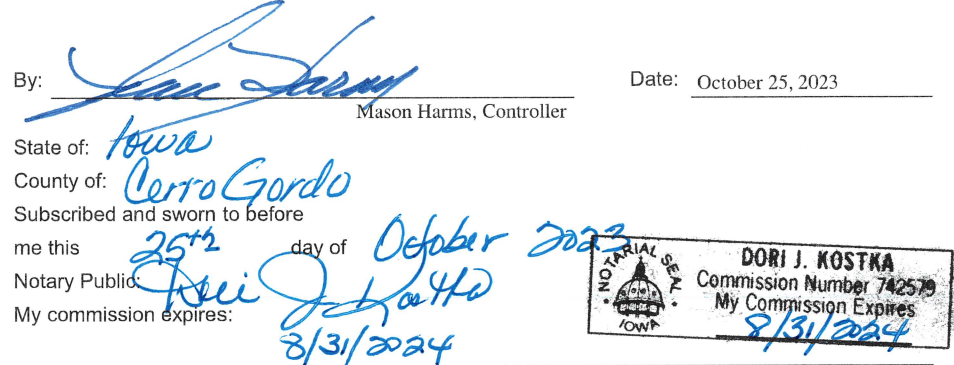 By: Mason Harms Date: October 25, 2023
Mason Harms, Controller
State of: Iowa
County of: Cerro Gordo
Subscribed and sworn to before
me this 25th day of October 2023
Notary Public: Dori J. Kostka
My commission expires:
8/31/2024
NOTARIAL SEAL
IOWA
DORI J. KOSTKA
Commission Number 742579
My Commission Expires
8/31/2024